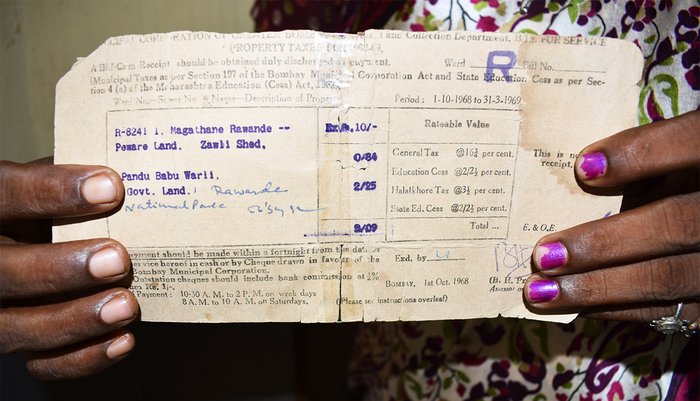 CORPORATION OF GREATER and Collection Department, FOR SERVICE
PROPERTY TAXES FOR 1968-69.
Receipt should be obtained duly discharged on payment. Ward R Bill No.
Municipal Taxes as per Section 197 of the Bombay Municipal Corporation Act and State Education Cess as per Sec-
tion 4 (a) of the Maharashtra Education (Cess) Act, 1962
Ward No.-Street No. & Name-Description of Property Period: 1-10-1968 to 31-3-1969
R-8241 1, Magathane Rawande --
Peware Land. Zawli Shed.
Pandu Babu Warli,
(Govt. Land.) Rawande
National
10/-
0/84
2/25
Rateable Value
General Tax per cent.
Education Cess @2/2½ per cent.
Halalkhore Tax per cent.
State Ed. Cess @2/2½ per cent.
Total ...
This is
receipt.
E. & O.E.
payment should be made within a fortnight from the date of
service hereof in cash or by Cheque drawn in favour of the
Bombay Municipal Corporation.
Outstation cheques should include bank commission at
Payment: 10-30 A.M. to 2 P.M. on week days
8 A.M. to 10 A.M. on Saturdays.
Exd. by
BOMBAY, 1st Oct. 1968
(Please see instructions overleaf)
(B. H.
Assessor